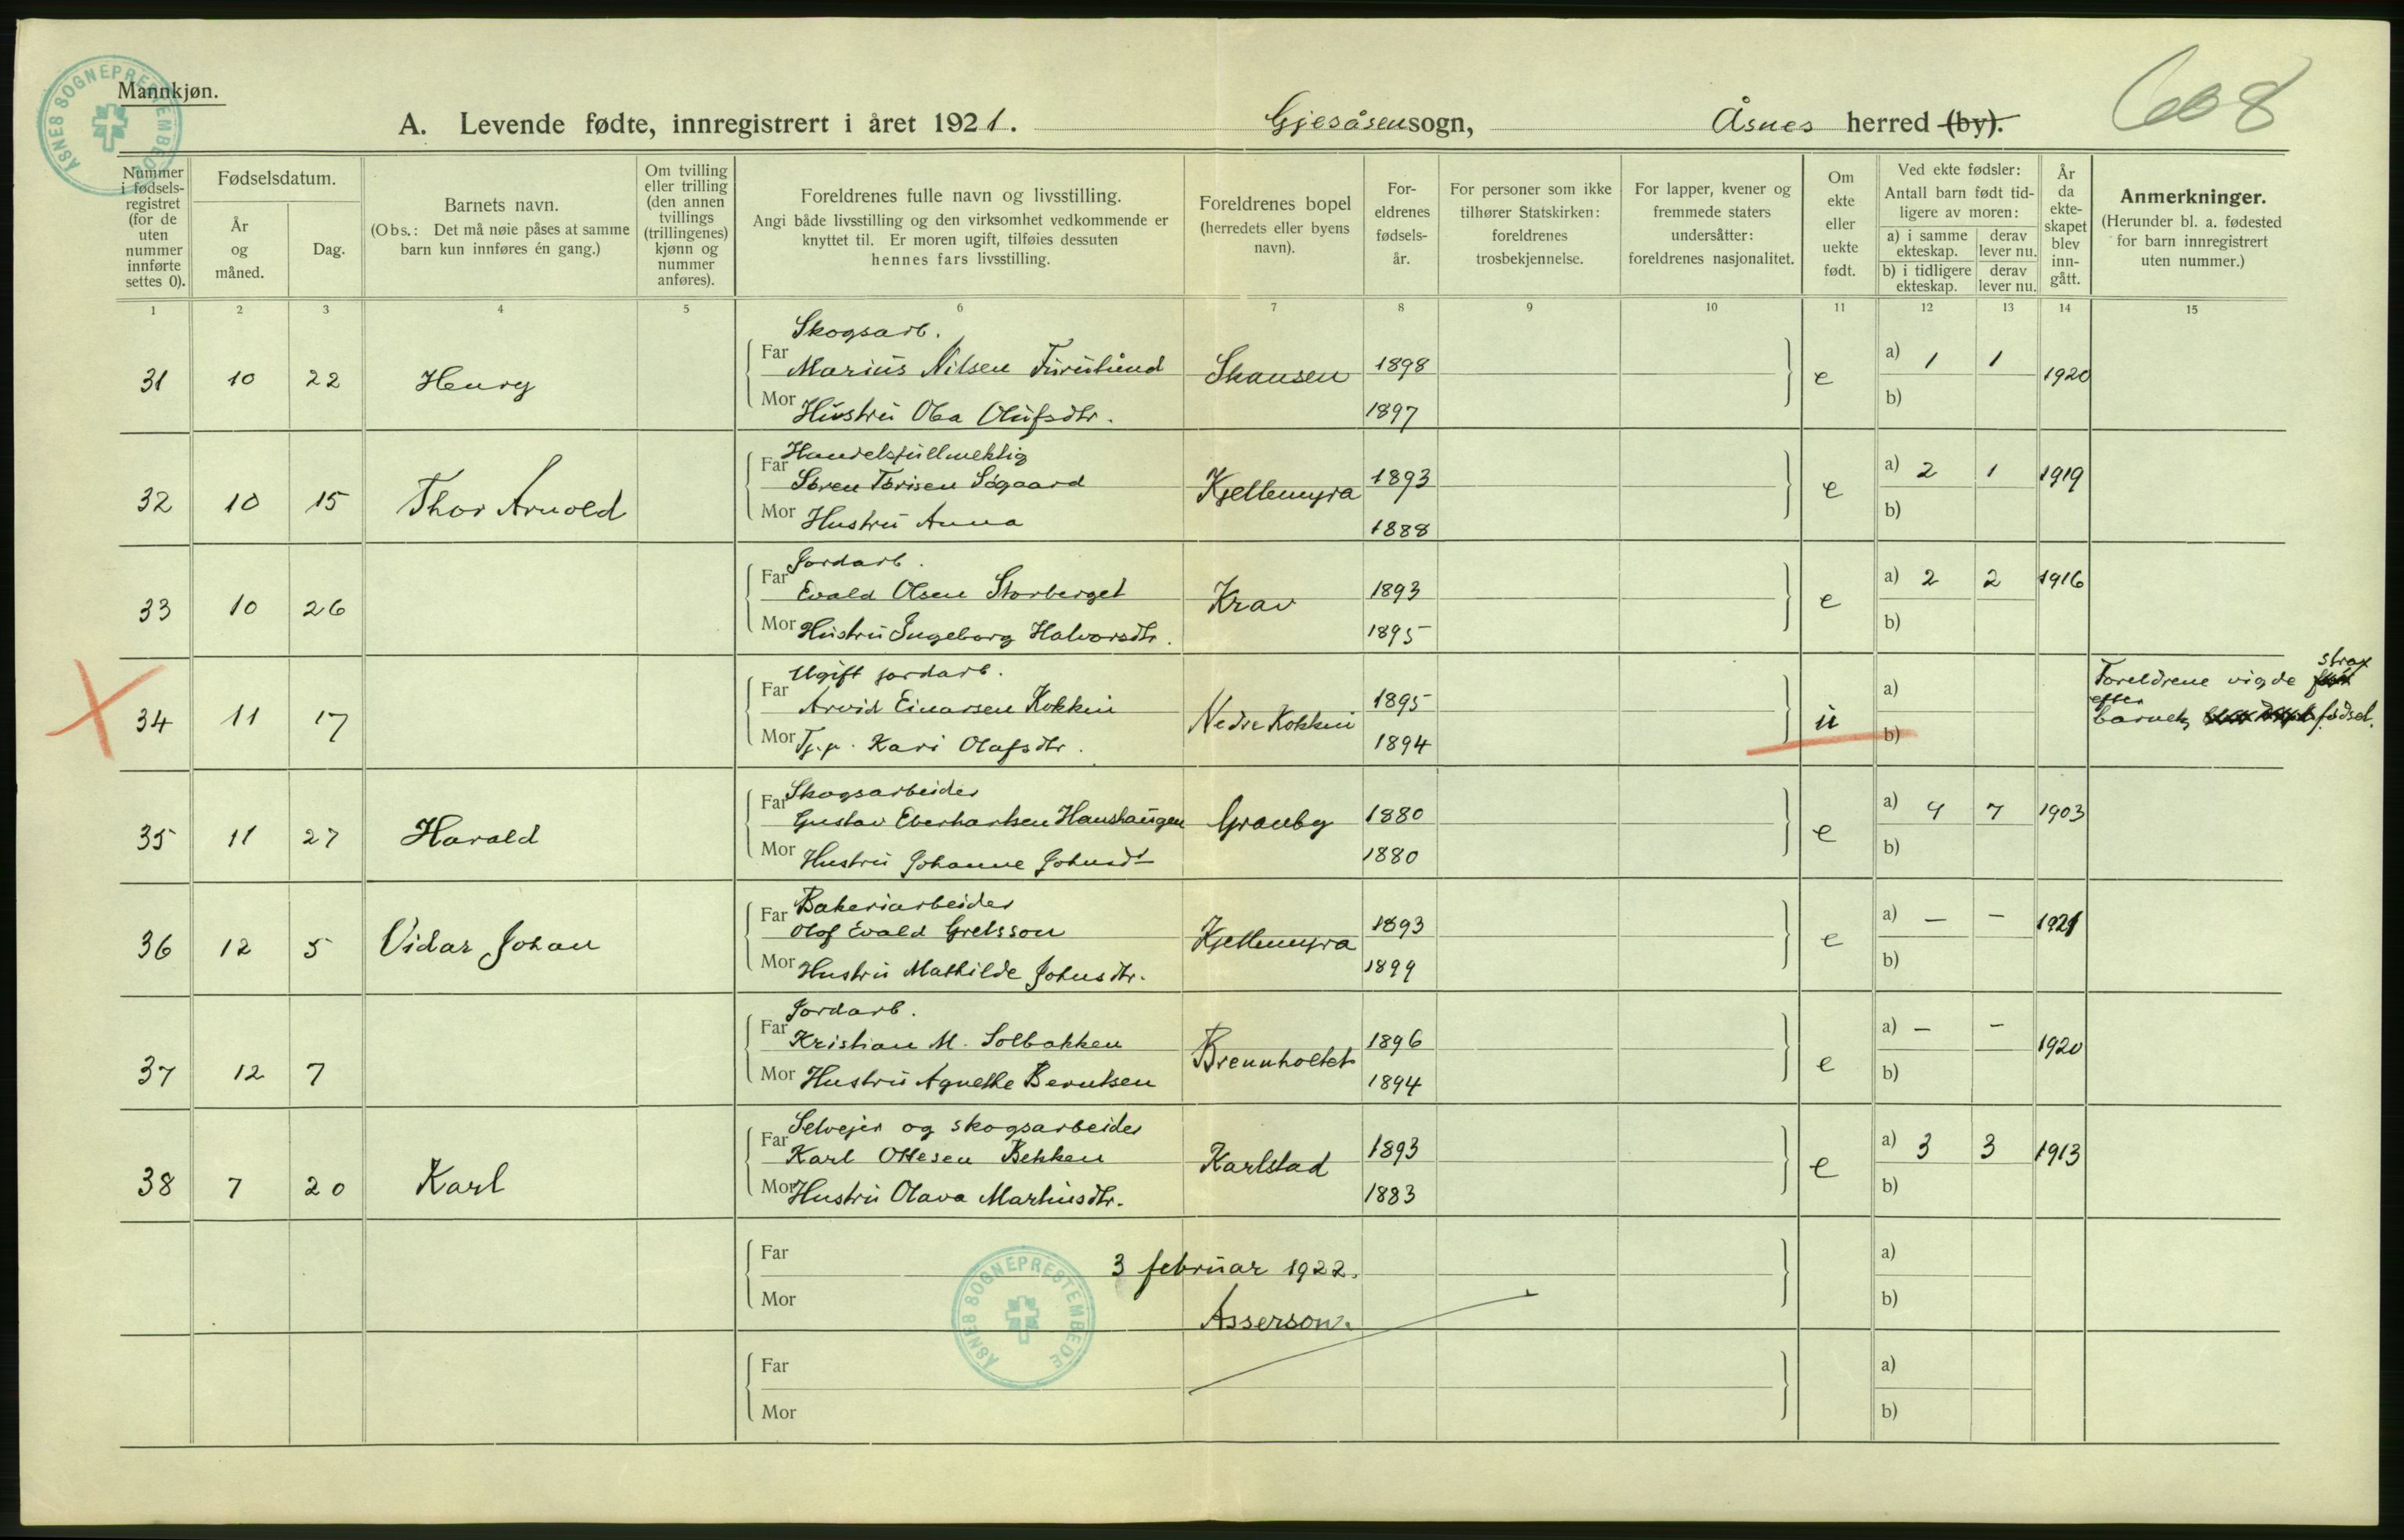 Mannkjøn.
ÅSNES SOGNEPRESTEMBEDE
A. Levende fødte, innregistrert i året 1921. Gjesåsen sogn, Åsnes herred (by).
668
Nummer i fødsels-registret (for de uten nummer innførte settes 0).
Fødselsdatum.
År og måned.
Dag.
Barnets navn.
(Obs.: Det må nøie påses at samme barn kun innføres én gang.)
Om tvilling eller trilling (den annen tvillings (trillingenes) kjønn og nummer anføres).
Foreldrenes fulle navn og livsstilling.
Angi både livsstilling og den virksomhet vedkommende er knyttet til. Er moren ugift, tilføies dessuten hennes fars livsstilling.
Foreldrenes bopel (herredets eller byens navn).
For-eldrenes fødsels-år.
For personer som ikke tilhører Statskirken: foreldrenes trosbekjennelse.
For lapper, kvener og fremmede staters undersåtter: foreldrenes nasjonalitet.
Om ekte eller uekte født.
Ved ekte fødsler:
Antall barn født tid-ligere av moren:
a) i samme ekteskap. derav lever nu.
b) i tidligere ekteskap. derav lever nu.
År da ekte-skapet blev inn-gått.
Anmerkninger.
(Herunder bl. a. fødested for barn innregistrert uten nummer.)
1 2 3 4 5 6 7 8 9 10 11 12 13 14 15
Skogsarb.
31 10 22 Henry Far Marius Nilsen Furulund Skansen 1898 e a) 1 1 1920
Mor Hustru Olea Olufsdtr. 1897 b)
Handelsfullmektig
32 10 15 Thor Arnold Far Sören Törisen Sögaard Kjellemyra 1893 e a) 2 1 1919
Mor Hustru Anna 1888 b)
Jordarb.
33 10 26 Far Evald Olsen Storberget Krav 1893 e a) 2 2 1916
Mor Hustru Ingeborg Halvorsdtr. 1895 b)
Ugift jordarb.
34 11 17 Far Arvid Einarsen Kokkin Nedre Kokkin 1895 u a) Foreldrene vigde strax
Mor Tj.p. Kari Olafsdtr. 1894 b) efter barnets fødsel.
Skogsarbeider
35 11 27 Harald Far Gustav Eberhartsen Hanshaugen Granby 1880 e a) 9 7 1903
Mor Hustru Johanne Johnsdt 1880 b)
Bakeriarbeider
36 12 5 Vidar Johan Far Olof Evald Gretsson Kjellemyra 1893 e a) — — 1921
Mor Hustru Mathilde Johnsdtr. 1899 b)
Jordarb.
37 12 7 Far Kristian M. Solbakken Brennholtet 1896 e a) — — 1920
Mor Hustru Agnethe Berntsen 1894 b)
Selvejer og skogsarbeider
38 7 20 Karl Far Karl Ottesen Bekken Karlstad 1893 e a) 3 3 1913
Mor Hustru Olava Martinsdtr. 1883 b)
Far 3 februar 1922. a)
Mor b)
ÅSNES SOGNEPRESTEMBEDE
Asserson.
Far a)
Mor b)